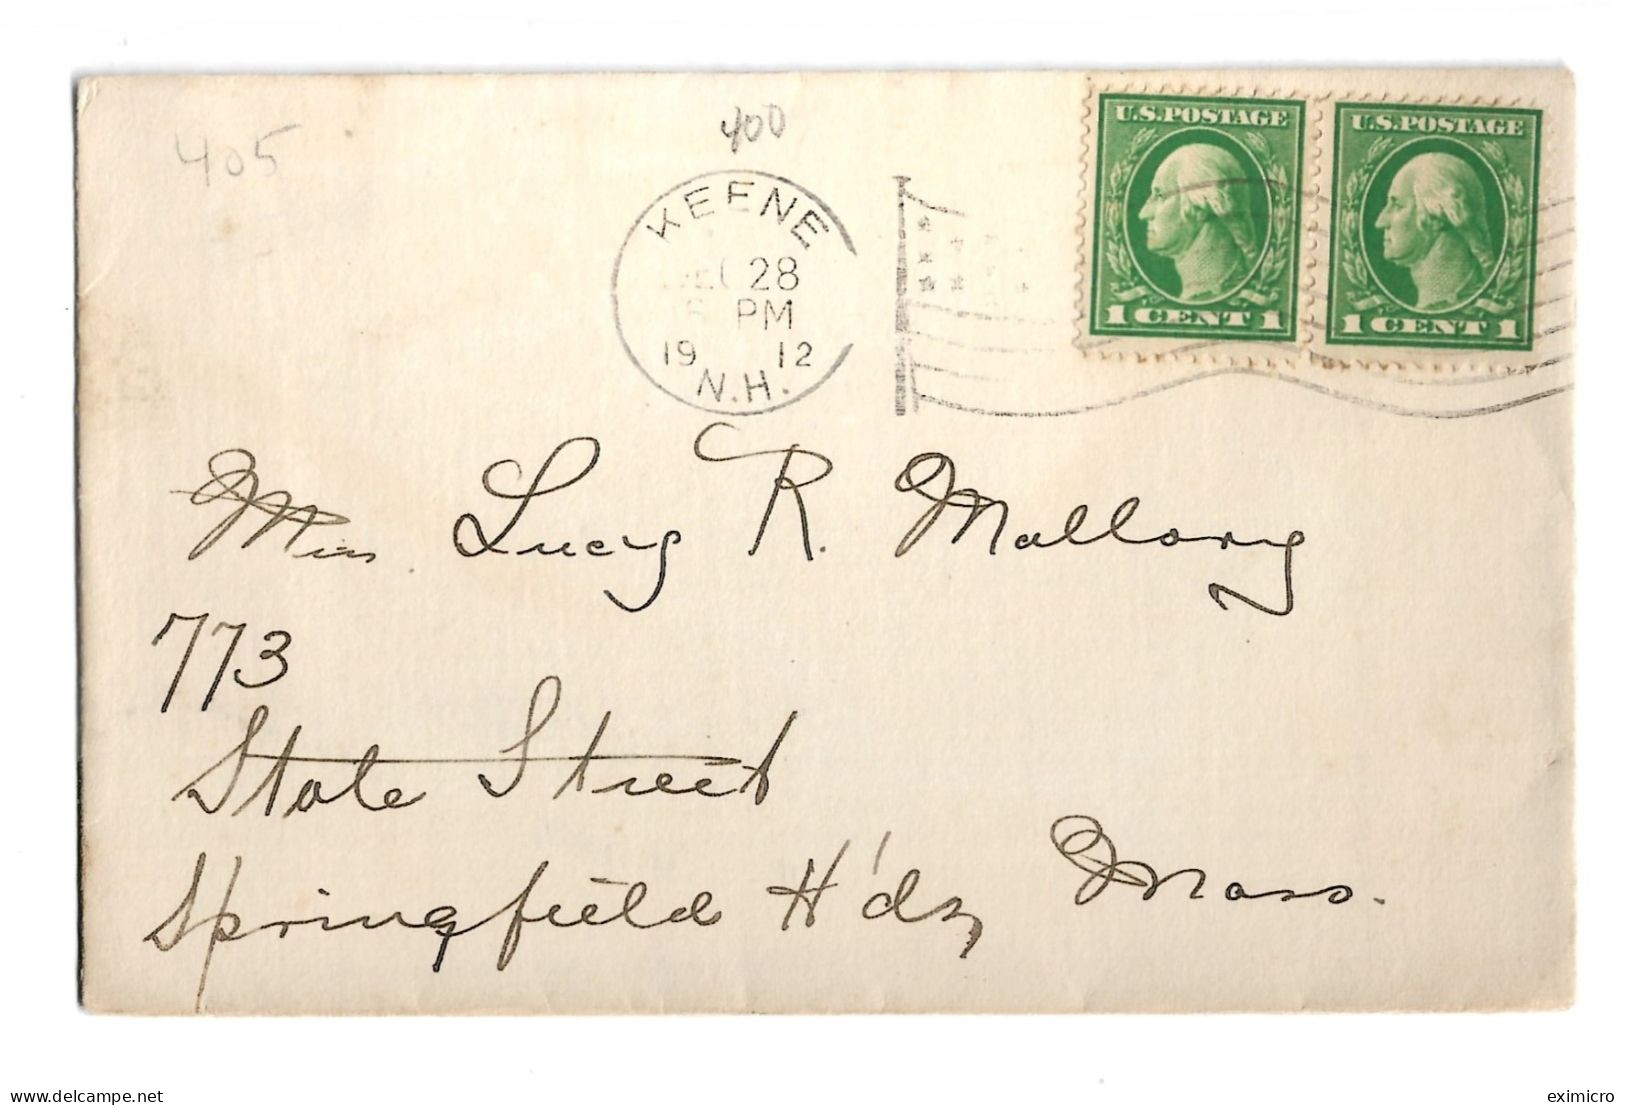 405
400
KEENE
DEC 28
PM
19 12
N.H.
U.S. POSTAGE
1 CENT 1
U.S. POSTAGE
1 CENT 1
Miss Lucy R. Mallory
773
State Street
Springfield H'ds, Mass.
delcampe.net
eximicro